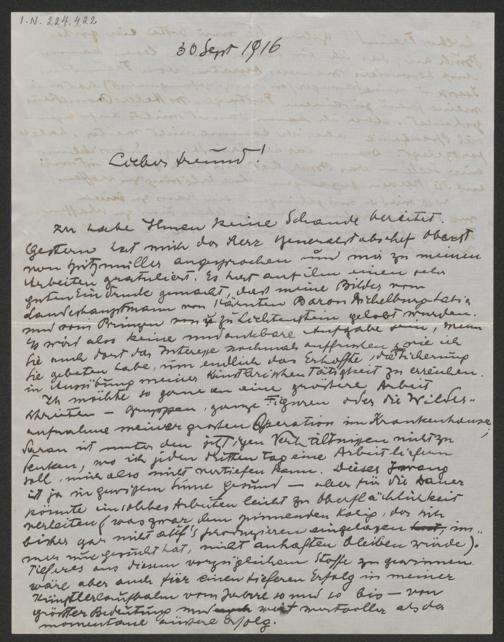 I.N. 224.422
30 Sept 1916
Lieber Freund!
Ich habe Ihnen keine Schande bereitet.
Gestern hat mich der Herr Generalstabschef Oberst
von Spitzmüller angesprochen und mir zu meinen
Arbeiten gratuliert. Es hat auf ihn einen sehr
guten Eindruck gemacht, daß meine Bilder vom
Landeshauptmann von Kärnten Baron
und vom Prinzen von u zu Liechtenstein gelobt wurden.
Es wird also keine undankbare Aufgabe sein, wenn
Sie auch dort das Interesse nochmals auffrischen, wie ich
Sie gebeten habe, um endlich das Erhoffte, die Sicherung
in Ausübung meiner künstlerischen Tätigkeit zu erreichen.
Ich möchte so gerne an eine größere Arbeit
schreiten – Gruppen, ganze Figuren oder die
aufnahme meiner großen Operation im Krankenhause,
daran ist unter den jetzigen Verhältnissen nicht zu
denken, wo ich jeden dritten Tag eine Arbeit liefern
soll, mich also nicht vertiefen kann. Dieser Zwang
ist ja in gewissem Sinne gesund – aber für die Dauer
könnte ein solches Arbeiten leicht zu Oberflächlichkeit
verleiten (was zwar dem Kolig, der sich
bisher gar nicht aufs produzieren eingelassen im-
mer nur gesucht hat, nicht anhaften bleiben würde).
Tieferes aus diesem vorzüglichen Stoffe zu gewinnen
wäre aber auch für einen tieferen Erfolg in meiner
Künstlerlaufbahn vom Jahre so und so bis – von
größter Bedeutung und weit wertvoller als der
momentane äußere Erfolg.